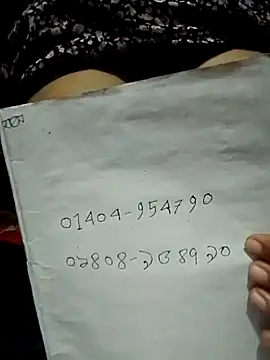 01404-954790
০১৪০৪-৯৫৪৭৯০